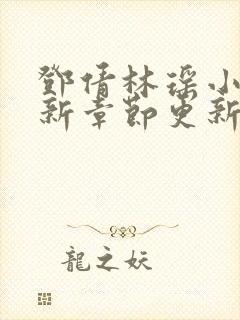 鄧倩林瑤小
新章節更新
龍之妖